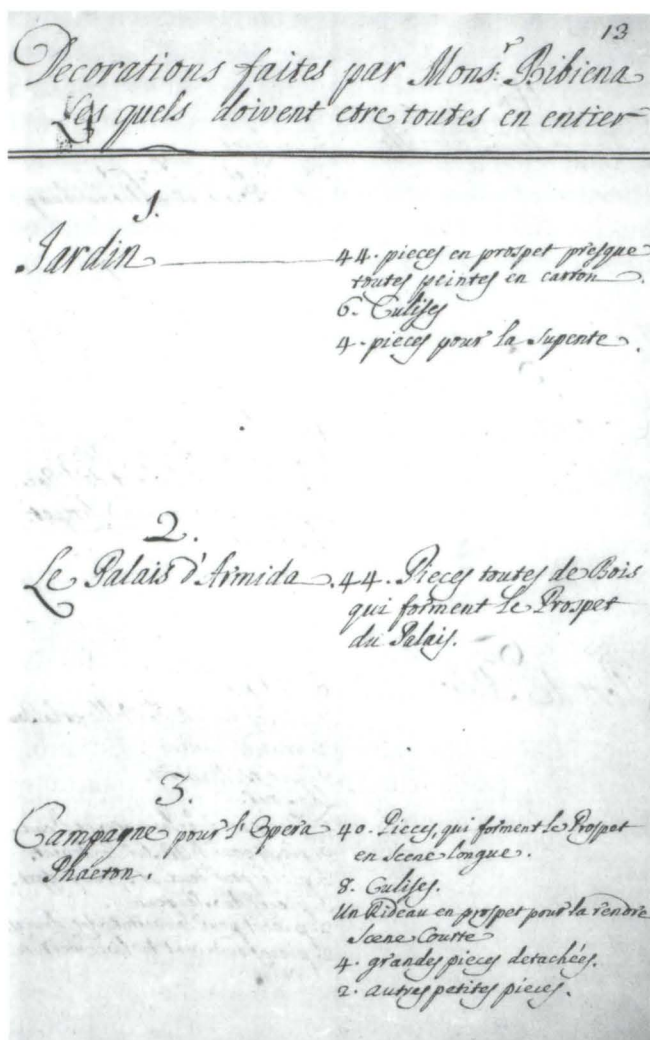 13
Decorations faites par Mons.r Bibiena
Les quels doivent etre toutes en entier
1.
Jardin
44. pieces en prospet presque
toutes peintes en carton.
6. Culises
4. pieces pour la supente.
2.
Le Palais d'Armida. 44. Pieces toutes de Bois
qui forment le Prospet
du Palais.
3.
Campagne pour l'Opera
Phaeton.
40. Pieces, qui forment le Prospet
en Scene longue.
8. Culises.
Un Rideau en prospet pour la rendre
Scene Courte
4. grandes pieces detachées.
2. autres petites pieces.